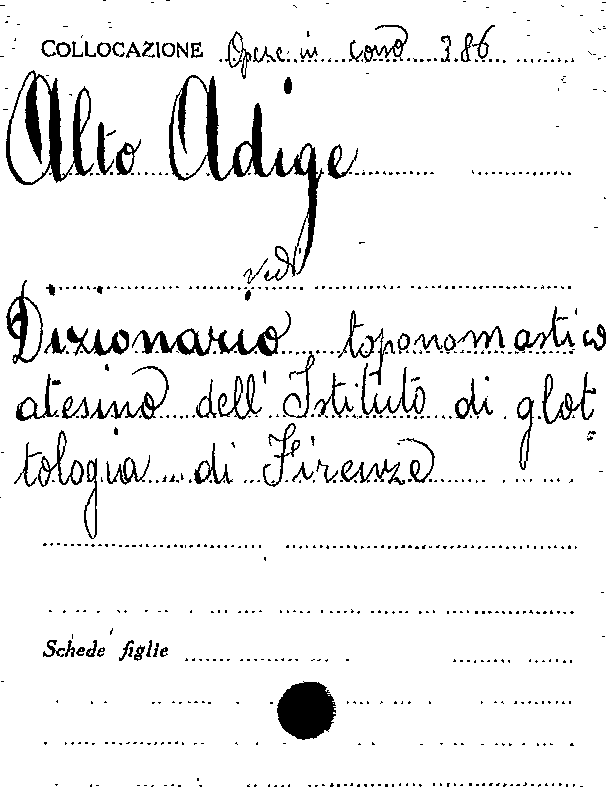 COLLOCAZIONE Opere in corso 386
Alto Adige
vedi
Dizionario toponomastico
atesino dell' Istituto di glot
tologia di Firenze
Schede figlie